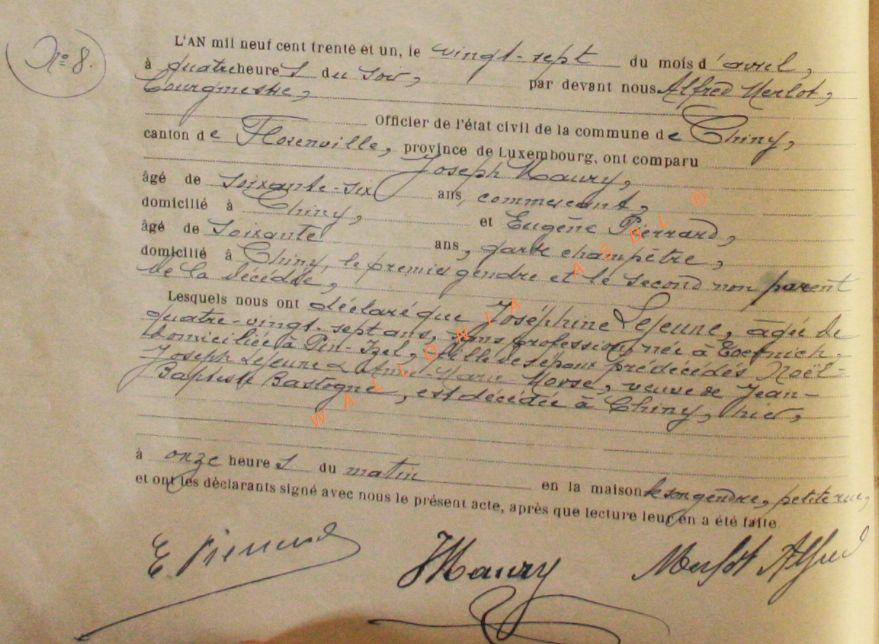 N° 8.
L'AN mil neuf cent trente et un, le vingt-sept du mois d'avril,
à quatre heures du soir, par devant nous Alfred Merlot,
Bourgmestre,
Officier de l'état civil de la commune de Chiny,
canton de Florenville, province de Luxembourg, ont comparu
Joseph Maury,
âgé de soixante-six ans, commerçant,
domicilié à Chiny, et Eugène Pierrard,
âgé de Soixante ans, garde champêtre,
domicilié à Chiny, le premier gendre et le second non parent
de la décédée,
Lesquels nous ont déclaré que Joséphine Lejeune, âgée de
quatre-vingt-sept ans, sans profession, née à
domiciliée à Pin-Izel, fille des époux prédécédés Noël-
Joseph Lejeune & Marie Morse, veuve de Jean-
Baptiste Bastogne, est décédée à Chiny, hier,
à onze heures du matin en la maison de son gendre, petite rue,
et ont les déclarants signé avec nous le présent acte, après que lecture leur en a été faite
E Pierrard JMaury Merlot Alfred
WALLONIA ASBL ©